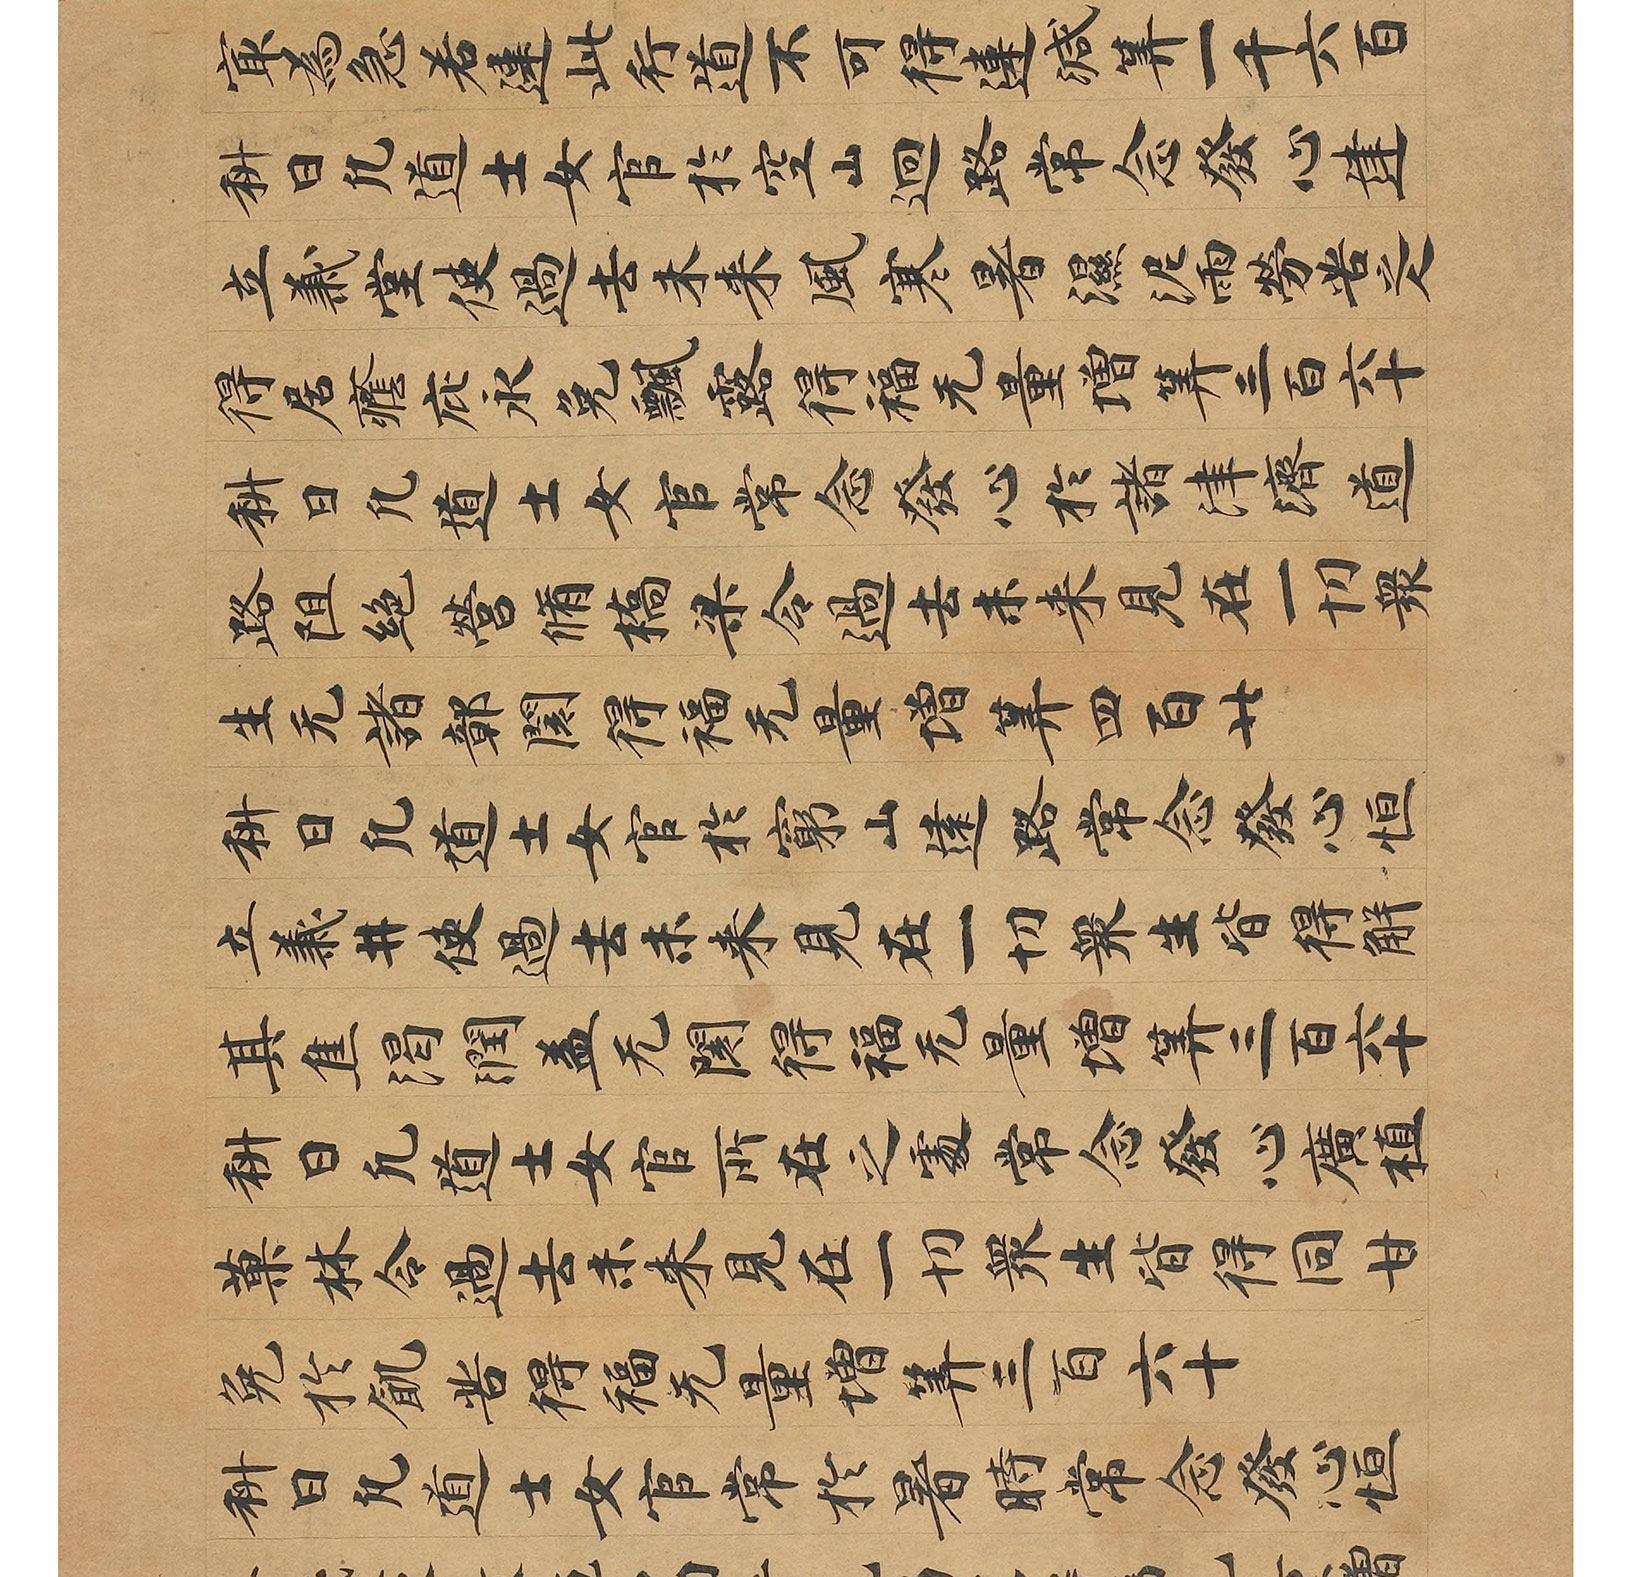 為急若違此行道不可得違減筭一千六百
科曰凡道士女官於空山迥路常念發心建
立義堂使過去未来風寒暑濕泥雨勞苦之人
得居庇永免飄露得福无量增筭三百六十
科曰凡道士女官常念發心於諸津濟道
路阻絕營脩橋梁令過去未来見在一切衆
生无諸鄣閡得福无量增筭四百廿
科曰凡道士女官於窮山遠路常念發心恒
立義井使過去未来見在一切衆生皆得解
其焦渴潤益无閡得福无量增筭三百六十
科曰凡道士女官所在之處常念發心廣植
菓林令過去未来見在一切衆生皆得同甘
免於飢苦得福无量增筭三百六十
科曰凡道士女官常於暑時常念發心恒